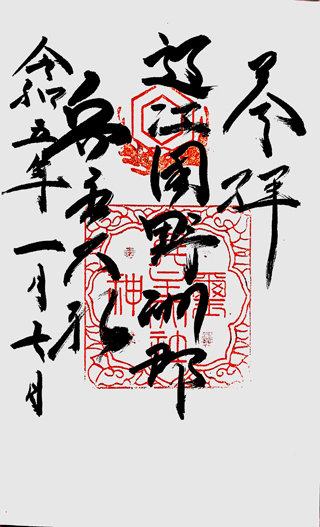 奉拝
近江国野洲郡
兵主大社
令和五年一月七日